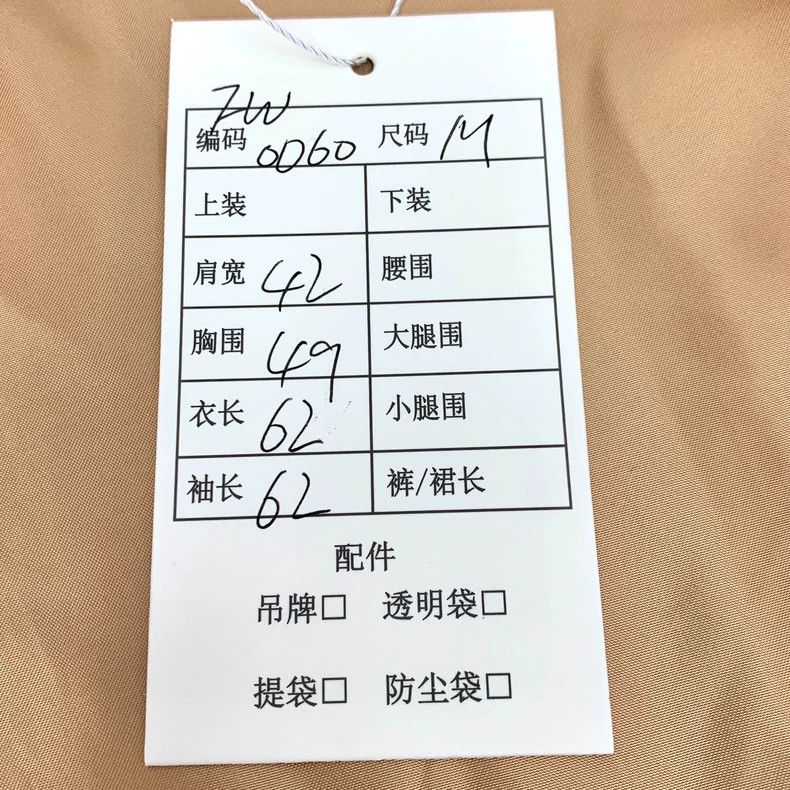 ZW
编码 0D60 尺码 M
上装 下装
肩宽 42 腰围
胸围 49 大腿围
衣长 62 小腿围
袖长 62 裤/裙长
配件
吊牌□ 透明袋□
提袋□ 防尘袋□